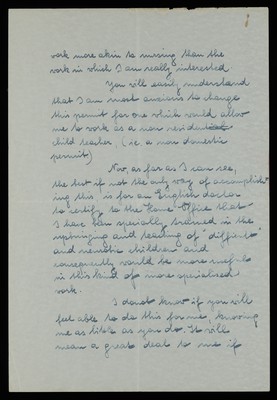 work more akin to nursing than the
work in which I am really interested
You will easily understand
that I am most anxious to change
this permit for one which would allow
me to work as a non resident
child teacher, (i.e. a non domestic
permit)
Now, as far as I can see,
the best if not the only way of accomplish-
ing this is for an English doctor
to certify to the Home Office that
I have been specially trained in the
upbringing and teaching of "difficult"
and neurotic children and
consequently would be more useful
in this kind of more specialised
work.
I do not know if you will
feel able to do this for me knowing
me as little as you do. It will
mean a great deal to me if